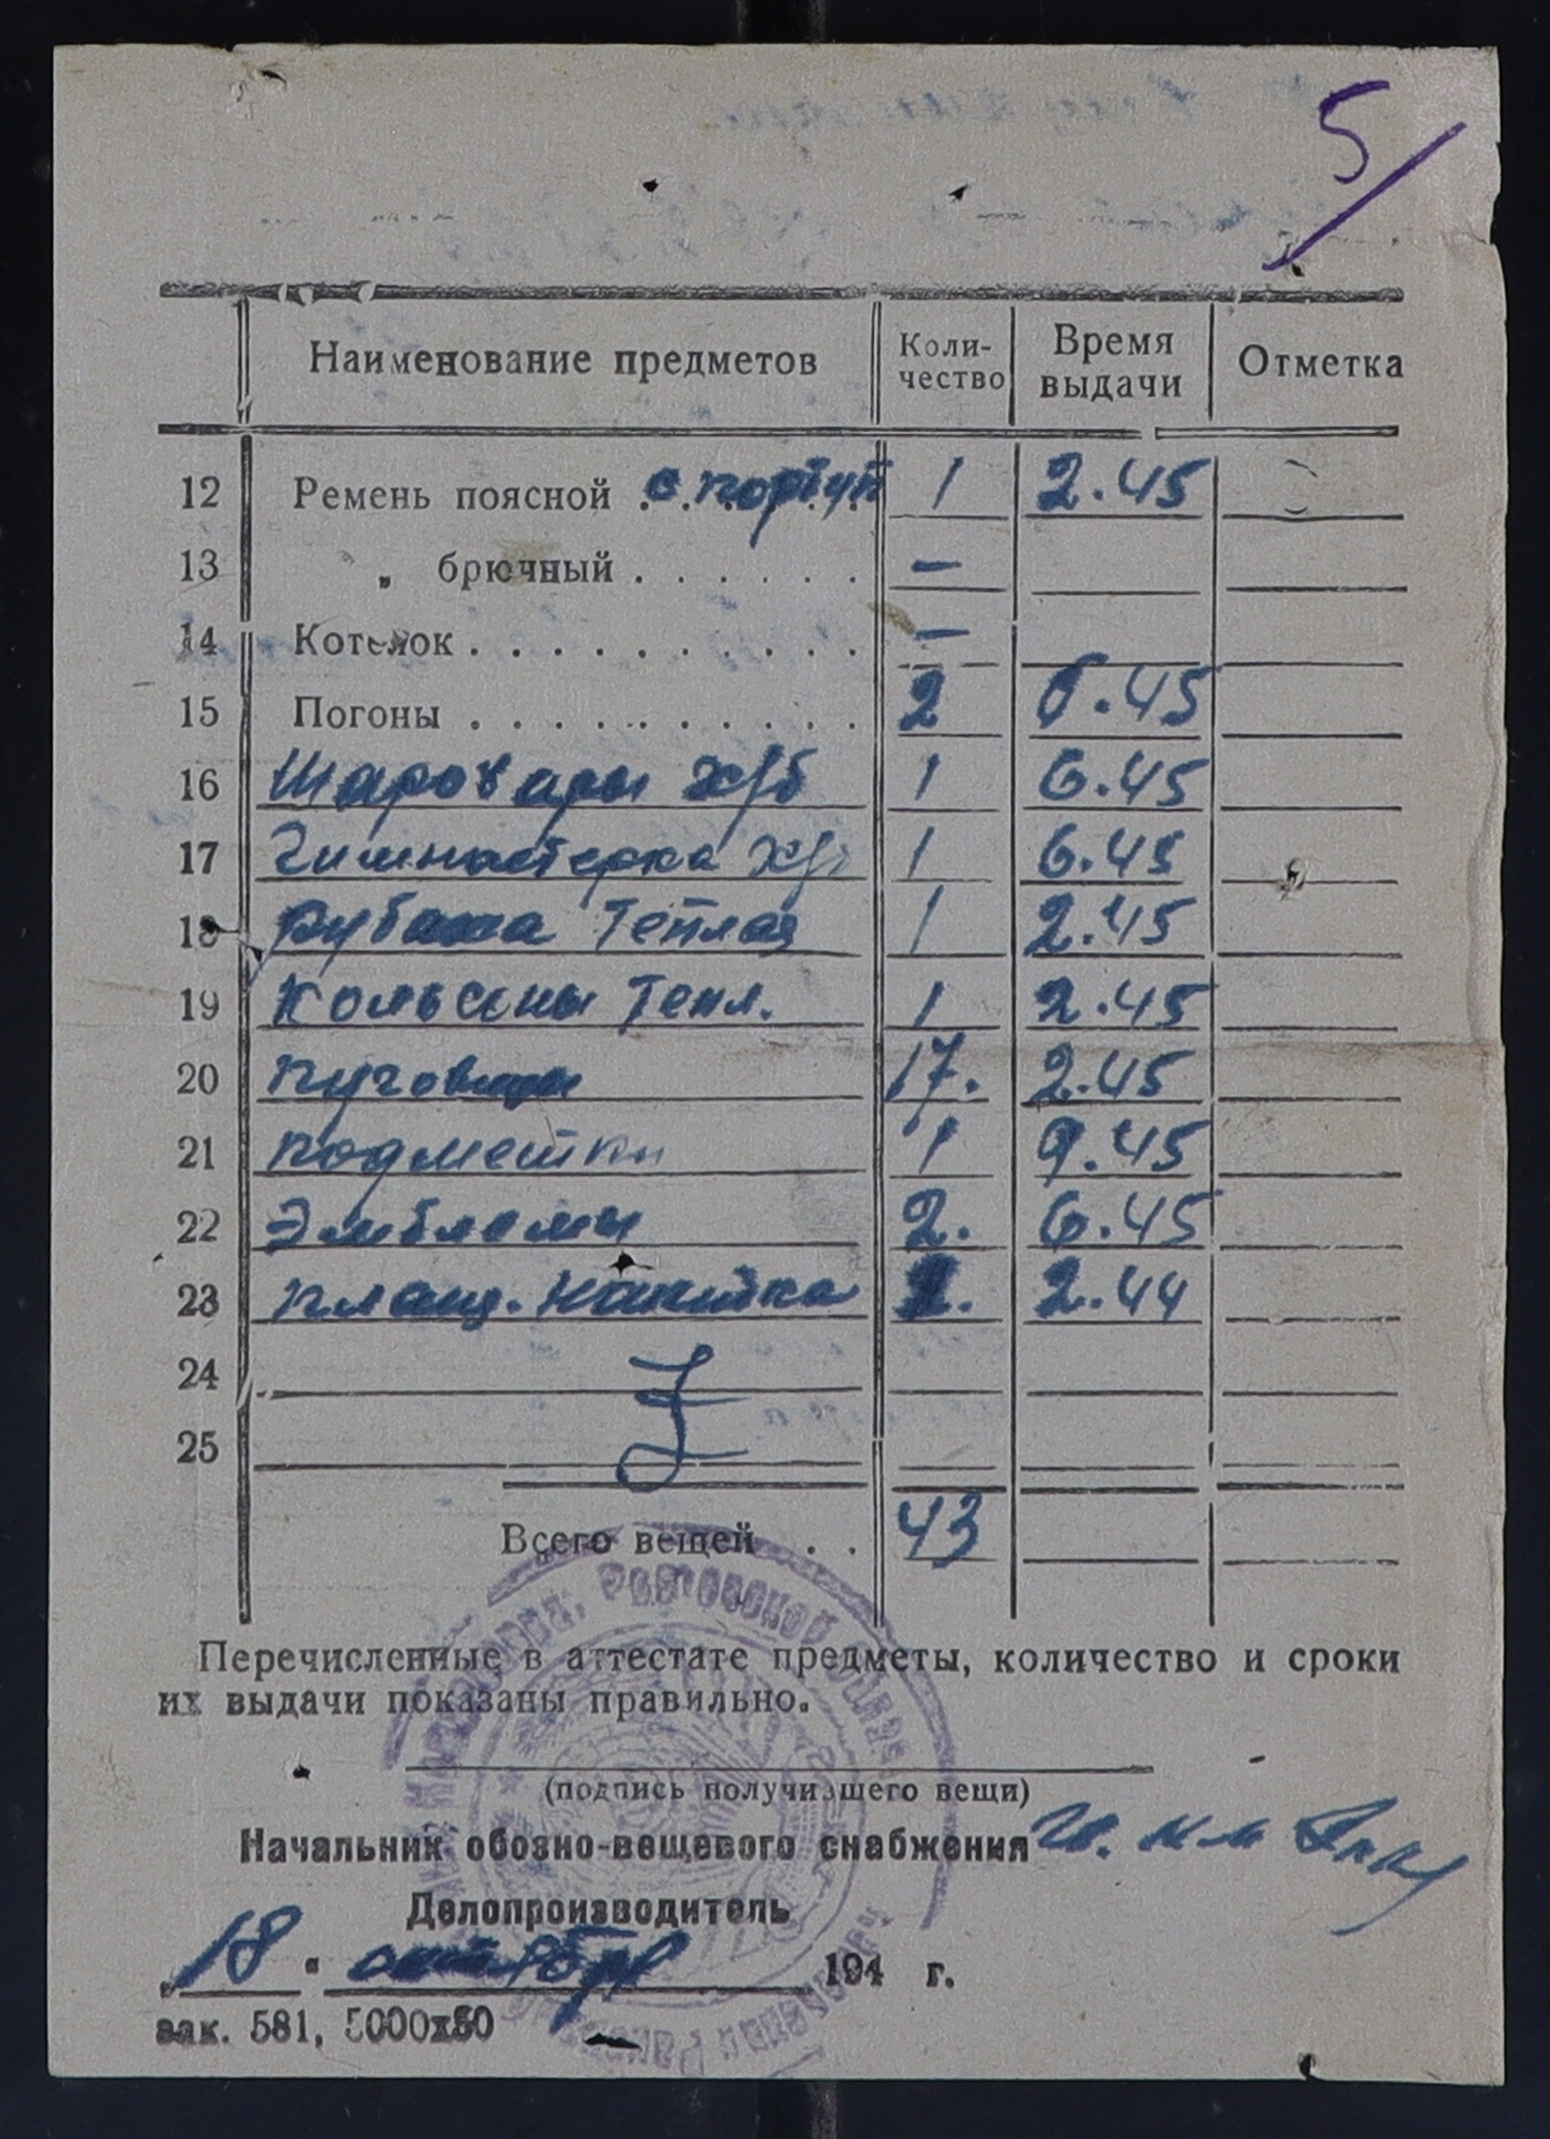 5
Наименование предметов Коли-чество Время выдачи Отметка
12 Ремень поясной с портуп 1 2.45
13 " брючный . . . . . . —
14 Котелок . . . . . . . . . . —
15 Погоны . . . . . . . . . . 2 6.45
16 Шаровары х/б 1 6.45
17 Гимнастерка х/б 1 6.45
18 Рубаха теплая 1 2.45
19 Кольсоны тепл. 1 2.45
20 пуговицы 17. 2.45
21 подметки 1 9.45
22 Эмблемы 2. 6.45
23 плащ. накитка 2.44
24
25
Всего вещей . . 43
Перечисленные в аттестате предметы, количество и сроки
их выдачи показаны правильно.
(подпись получившего вещи)
Начальник обозно-вещевого снабжения
Делопроизводитель
„18" октября 194 г.
зак. 581, 5000х50
Ростовской